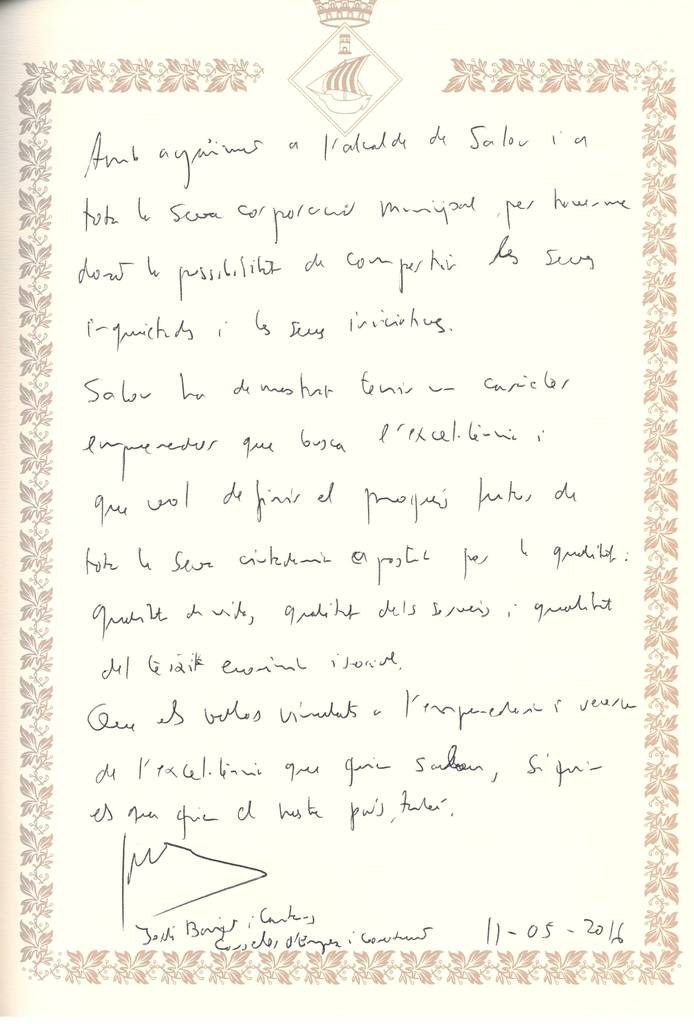 Amb agraïment a l'alcalde de Salou i a
tota la seva corporació municipal, per haver-me
donat la possibilitat de compartir les seves
inquietuds i les seves iniciatives.
Salou ha demostrat tenir un caràcter
emprenedor que busca l'excel·lència i
que vol definir el progrés futur de
tota la seva ciutadania apostant per la qualitat:
qualitat de vida, qualitat dels serveis i qualitat
del teixit econòmic i social.
Que els valors vinculats a l'emprenedoria i recerca
de l'excel·lència que guien Salou, siguin
els que guiin el nostre país, també.
Jordi Baiget i Cantons
Conseller d'Empresa i Coneixement 11-05-2016